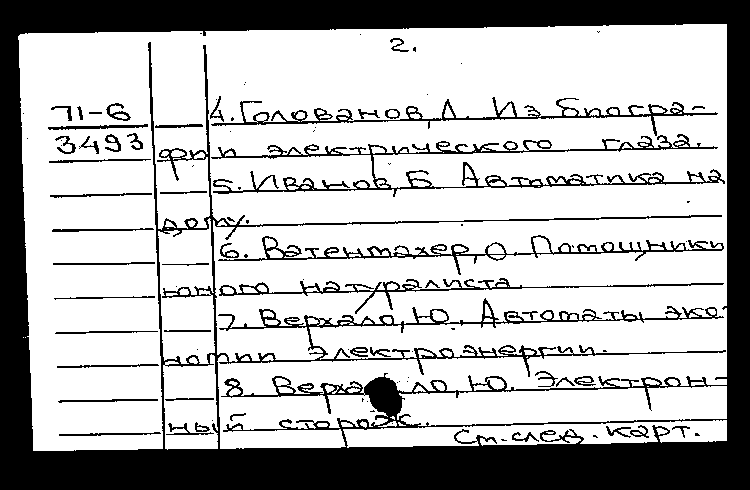 2.
71-6
3493
4. Голованов, Л. Из биогра-
фии электрического глаза.
5. Иванов, Б. Автоматика на
дому.
6. Ватентахер, О. Помощники
юного натуралиста.
7. Верхало, Ю. Автоматы эко-
номии электроэнергии.
8. Верхало, Ю. Электрон-
ный сторож.
См. след. карт.